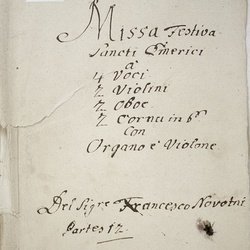 Missa Festiva
Sancti Emerici
à
4 Voci
2 Violini
2 Oboe
2 Cornu in b
con
Organo è Violone
Del Sigre Francesco Novotni
Partes 12.